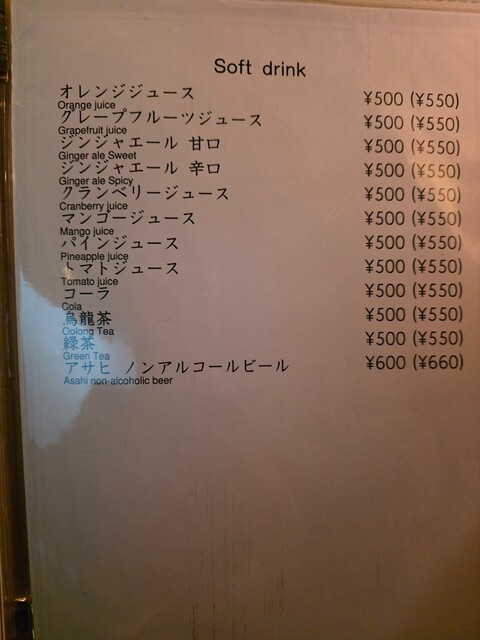 Soft drink
オレンジジュース ¥500 (¥550)
Orange juice
グレープフルーツジュース ¥500 (¥550)
Grapefruit juice
ジンジャエール 甘口 ¥500 (¥550)
Ginger ale Sweet
ジンジャエール 辛口 ¥500 (¥550)
Ginger ale Spicy
クランベリージュース ¥500 (¥550)
Cranberry juice
マンゴージュース ¥500 (¥550)
Mango juice
パインジュース ¥500 (¥550)
Pineapple juice
トマトジュース ¥500 (¥550)
Tomato juice
コーラ ¥500 (¥550)
Cola
烏龍茶 ¥500 (¥550)
Oolong Tea
緑茶 ¥500 (¥550)
Green Tea
アサヒ ノンアルコールビール ¥600 (¥660)
Asahi non-alcoholic beer